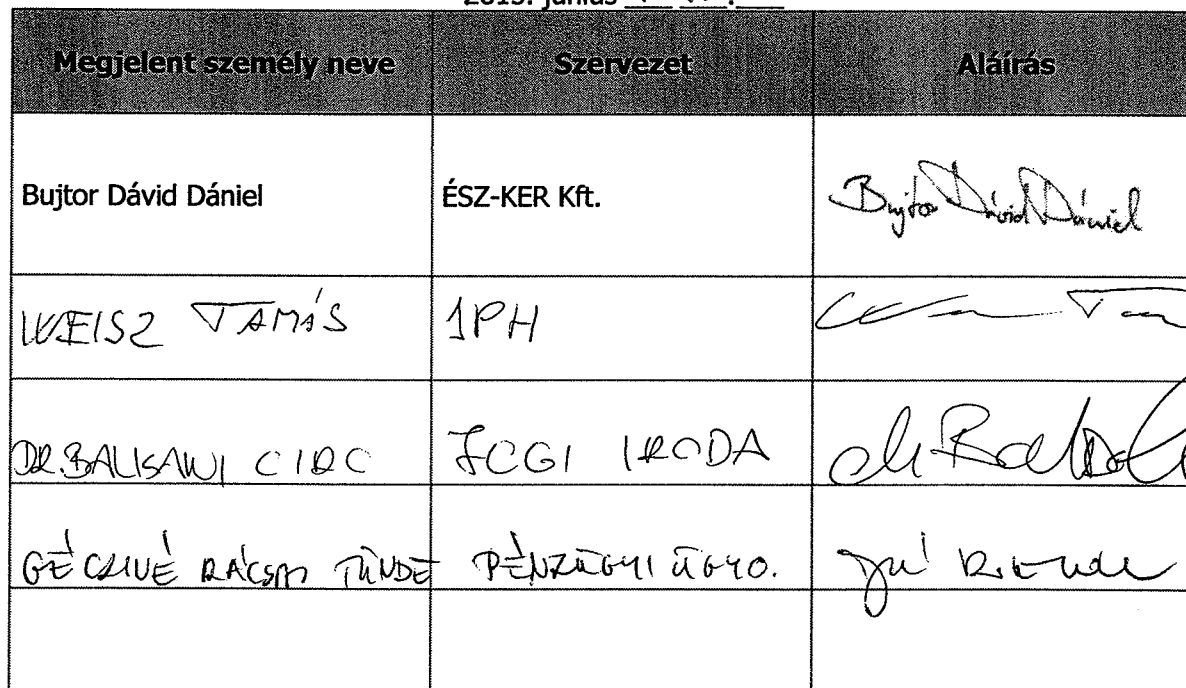 2015. június
Megjelent személy neve Szervezet Aláírás
Bujtor Dávid Dániel ÉSZ-KER Kft. Bujtor Dávid Dániel
WEISZ TAMÁS JPH
DR. BALISANI CIRO JOGI IRODA
TÜNDE PÉNZÜGYI ÜGYO.